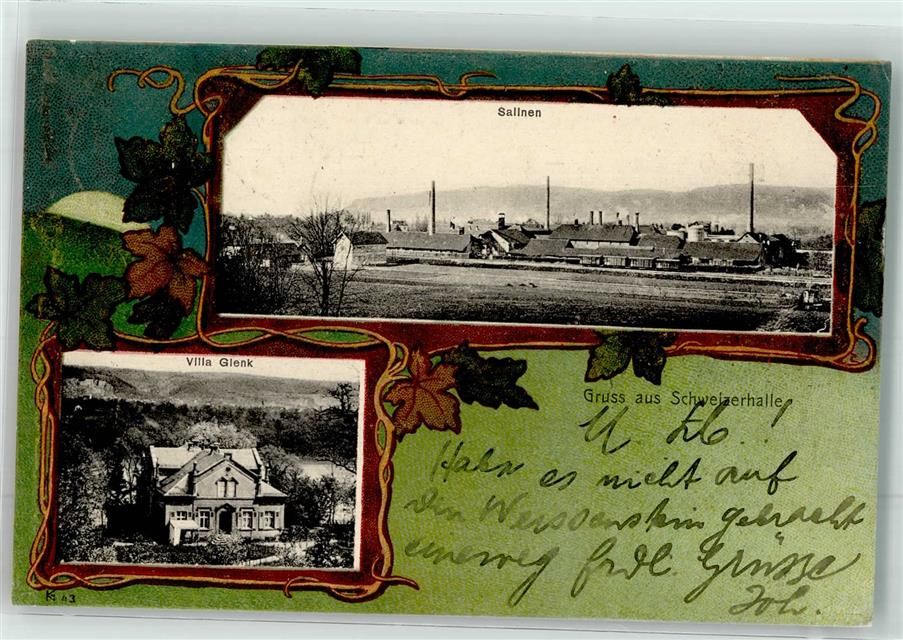 Salinen
Villa Glenk
Gruss aus Schweizerhalle
U. Lb..!
Habe es nicht auf
den Weissenstein gebracht
eineweg frdl. Grüsse
Joh.
K 43